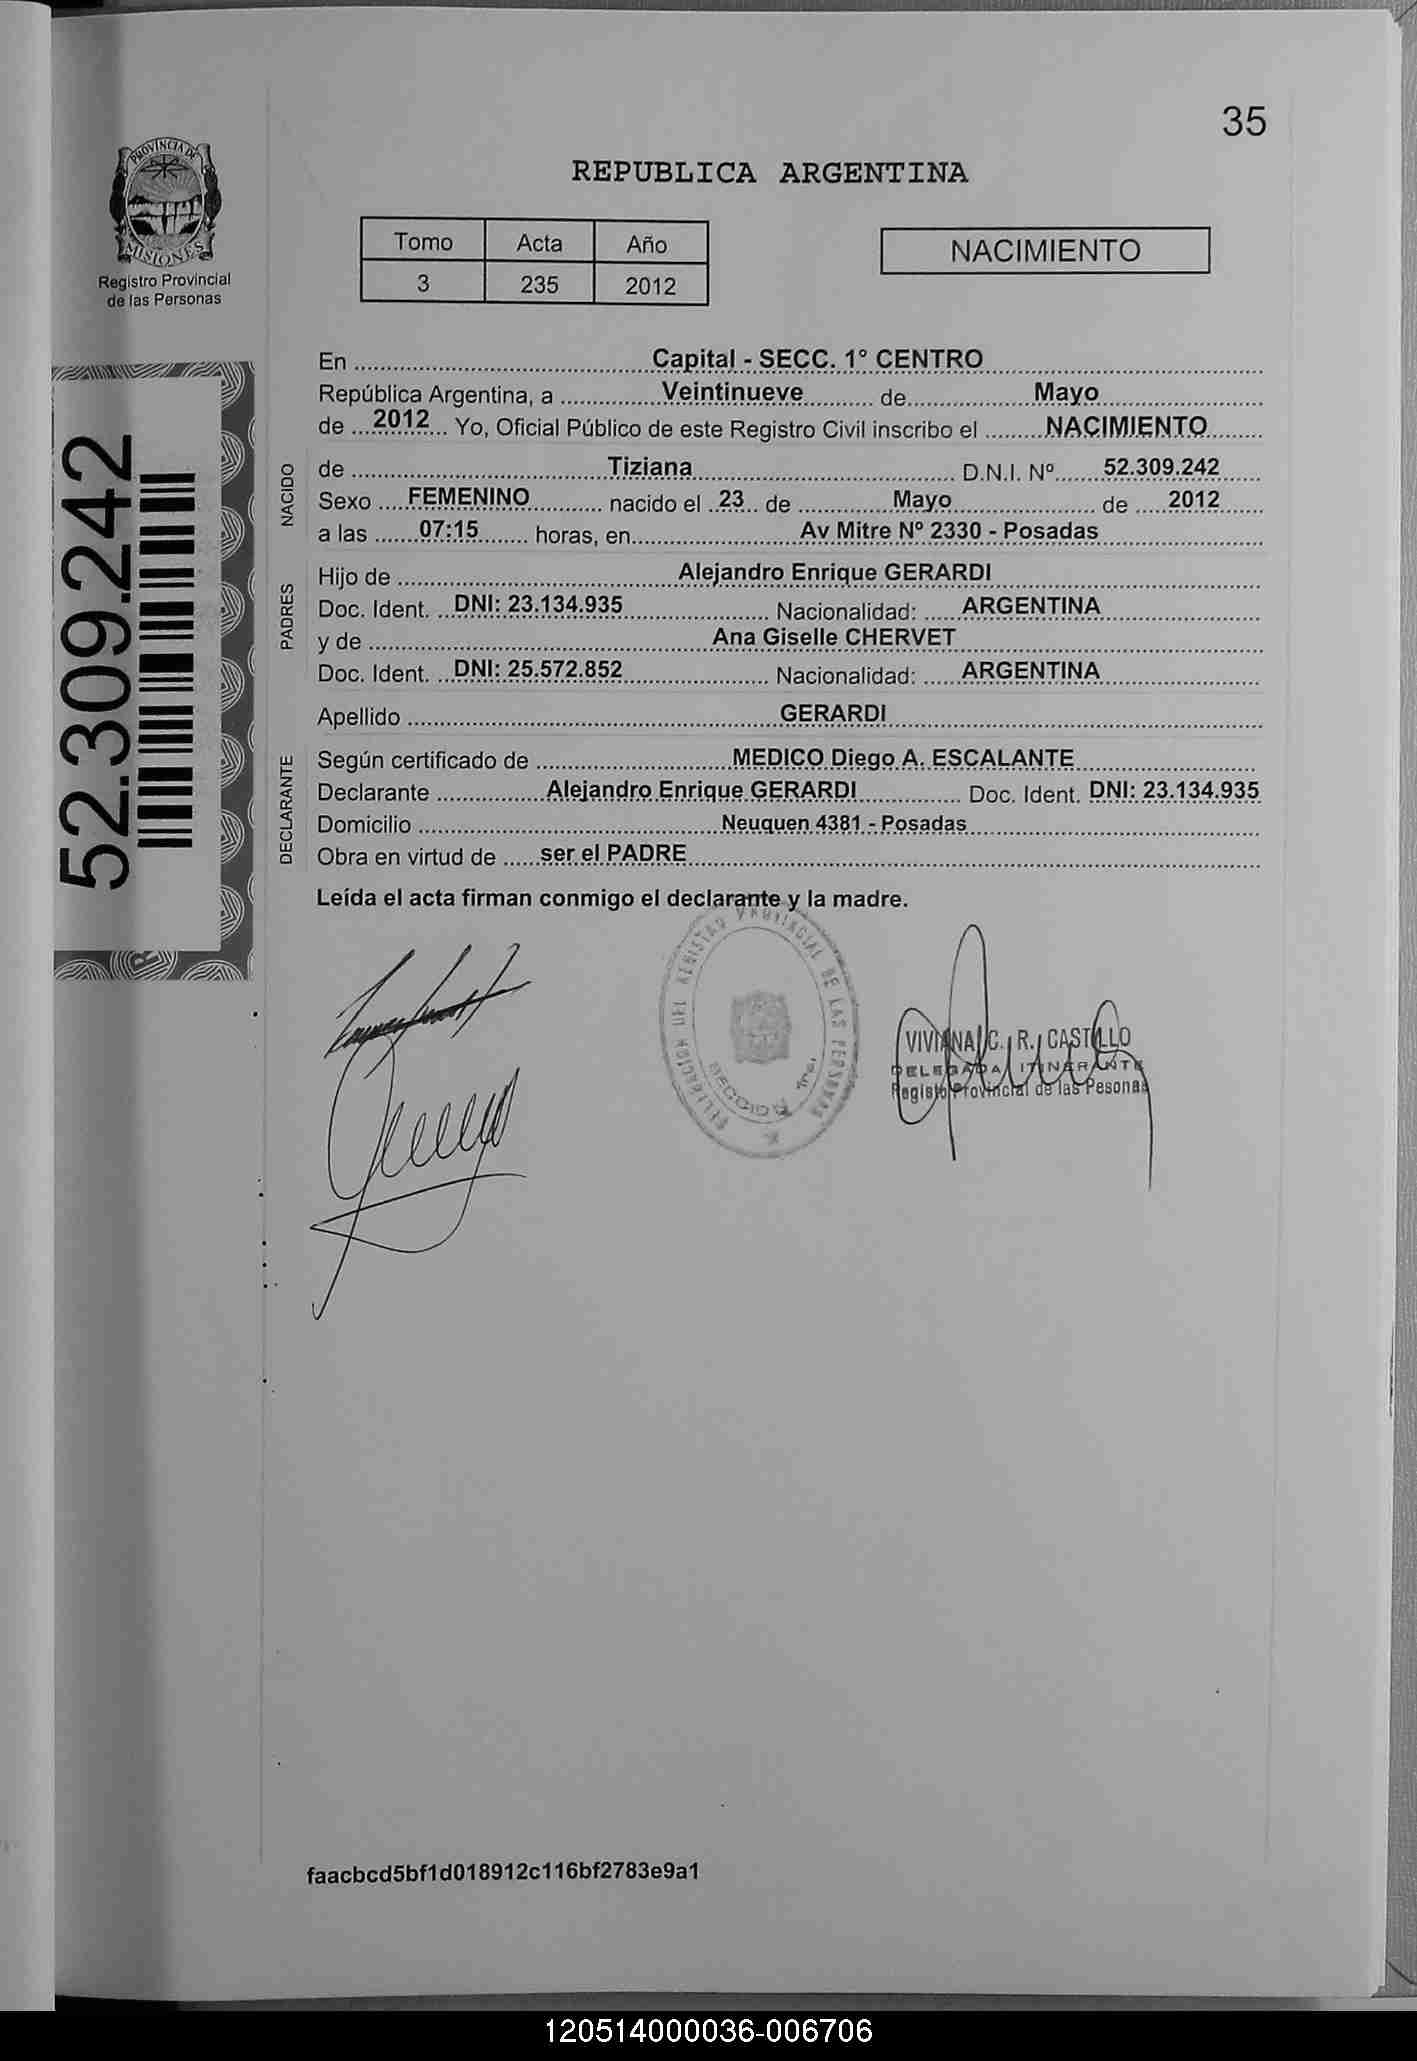 35
PROVINCIA DE
MISIONES
Registro Provincial
de las Personas
REPUBLICA ARGENTINA
Tomo Acta Año
3 235 2012
NACIMIENTO
52.309.242
En ........ Capital - SECC. 1° CENTRO ........
República Argentina, a ........ Veintinueve ........ de ........ Mayo ........
de ... 2012 ... Yo, Oficial Público de este Registro Civil inscribo el ........ NACIMIENTO ........
NACIDO
de ........ Tiziana ........ D.N.I. Nº ........ 52.309.242 ........
Sexo ..... FEMENINO ........ nacido el .. 23 .. de ........ Mayo ........ de ..... 2012 ......
a las ....... 07:15 ....... horas, en ........ Av Mitre Nº 2330 - Posadas ........
PADRES
Hijo de ........ Alejandro Enrique GERARDI ........
Doc. Ident. ... DNI: 23.134.935 ........ Nacionalidad: ...... ARGENTINA ........
y de ........ Ana Giselle CHERVET ........
Doc. Ident. ... DNI: 25.572.852 ........ Nacionalidad: ...... ARGENTINA ........
Apellido ........ GERARDI ........
DECLARANTE
Según certificado de ........ MEDICO Diego A. ESCALANTE ........
Declarante ........ Alejandro Enrique GERARDI ........ Doc. Ident. DNI: 23.134.935
Domicilio ........ Neuquen 4381 - Posadas ........
Obra en virtud de ...... ser el PADRE ........
Leída el acta firman conmigo el declarante y la madre.
DELEGACION DEL REGISTRO PROVINCIAL DE LAS PERSONAS
SECCION 1ra.
VIVIANA C. R. CASTILLO
DELEGADA ITINERANTE
Registo Provincial de las Pesonas
faacbcd5bf1d018912c116bf2783e9a1
120514000036-006706